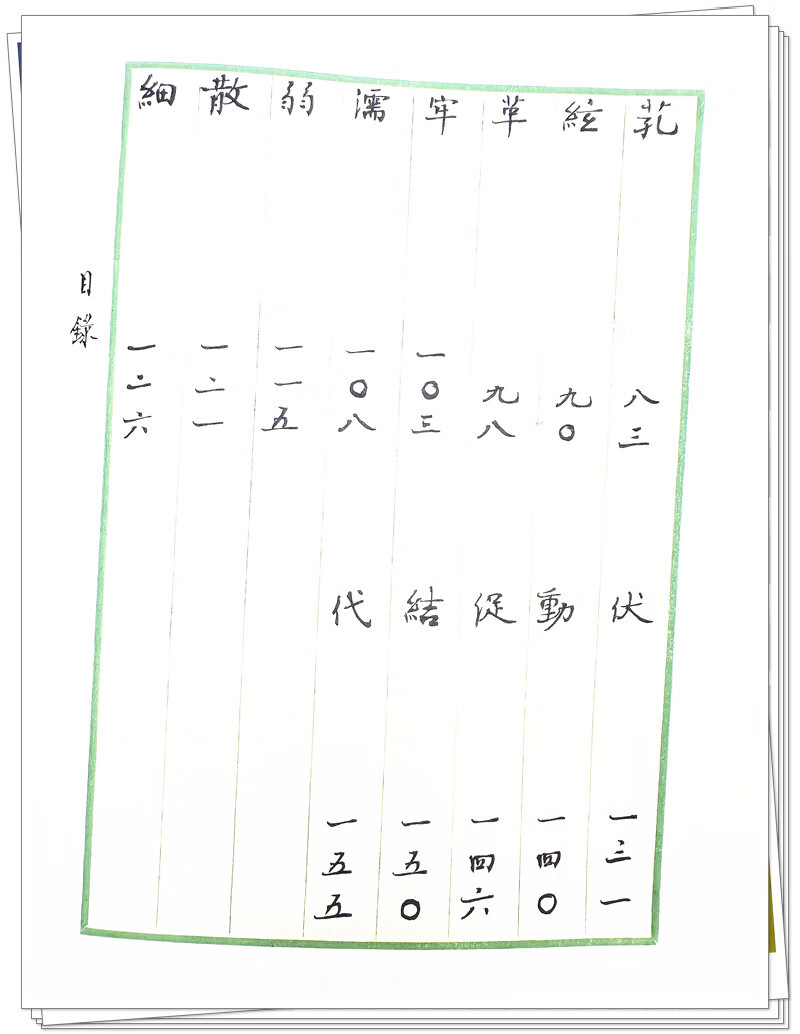 芤 八三
絃 九〇
革 九八
牢 一〇三
濡 一〇八
弱 一一五
散 一二一
細 一二六
伏 一三一
動 一四〇
促 一四六
結 一五〇
代 一五五
目錄